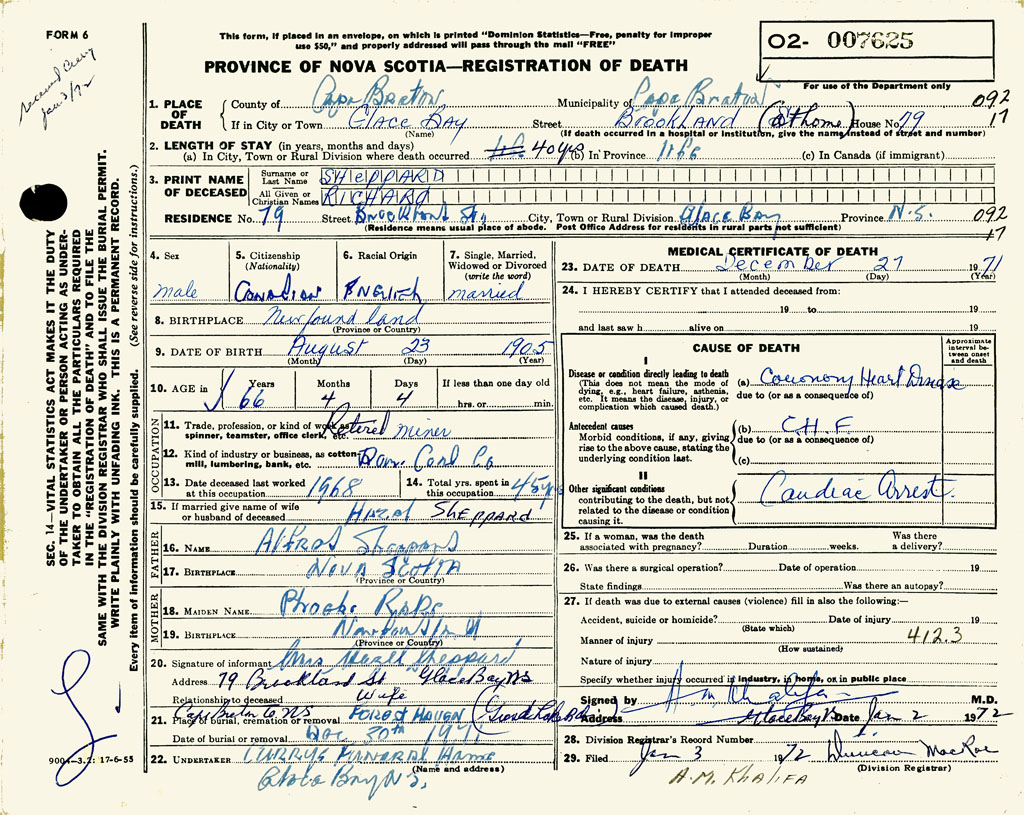 FORM 6
This form, if placed in an envelope, on which is printed "Dominion Statistics—Free, penalty for improper
use $50," and properly addressed will pass through the mail "FREE"
PROVINCE OF NOVA SCOTIA—REGISTRATION OF DEATH
O2- 007625
For use of the Department only
Jan 3/72
SEC. 14—VITAL STATISTICS ACT MAKES IT THE DUTY
OF THE UNDERTAKER OR PERSON ACTING AS UNDER-
TAKER TO OBTAIN ALL THE PARTICULARS REQUIRED
IN THE "REGISTRATION OF DEATH" AND TO FILE THE
SAME WITH THE DIVISION REGISTRAR WHO SHALL ISSUE THE BURIAL PERMIT.
WRITE PLAINLY WITH UNFADING INK. THIS IS A PERMANENT RECORD.
Every item of information should be carefully supplied. (See reverse side for instructions.)
1. PLACE OF DEATH County of Cape Breton Municipality of Cape Breton 092
If in City or Town Glace Bay Street Brookland (At home) House No 79 17
(Name) (If death occurred in a hospital or institution, give the name instead of street and number)
2. LENGTH OF STAY (in years, months and days)
(a) In City, Town or Rural Division where death occurred 40 yrs (b) In Province life (c) In Canada (if immigrant)
3. PRINT NAME OF DECEASED Surname or Last Name SHEPPARD
All Given or Christian Names RICHARD
RESIDENCE No. 79 Street Brookland St, City, Town or Rural Division Glace Bay Province N.S. 092
(Residence means usual place of abode. Post Office Address for residents in rural parts not sufficient) 17
4. Sex male
5. Citizenship (Nationality) Canadian
6. Racial Origin English
7. Single, Married, Widowed or Divorced (write the word) married
8. BIRTHPLACE Newfoundland
(Province or Country)
9. DATE OF BIRTH August 23 1905
(Month) (Day) (Year)
10. AGE in Years 66 Months 4 Days 4 If less than one day old hrs. or min.
OCCUPATION
11. Trade, profession, or kind of work as spinner, teamster, office clerk, etc. Retired miner
12. Kind of industry or business, as cotton mill, lumbering, bank, etc. Dom. Coal Co
13. Date deceased last worked at this occupation 1968
14. Total yrs. spent in this occupation 45 yrs
15. If married give name of wife or husband of deceased Hazel SHEPPARD
FATHER
16. NAME Alfred Sheppard
17. BIRTHPLACE NOVA SCOTIA
(Province or Country)
MOTHER
18. MAIDEN NAME Phoebe
19. BIRTHPLACE
(Province or Country)
20. Signature of informant Mrs Hazel Sheppard
Address 79 Brookland St Glace Bay NS
Relationship to deceased Wife
Cape Breton Co NS
21. Place of burial, cremation or removal FOREST HAVEN
Date of burial or removal Dec 30th 1971
22. UNDERTAKER CURRYS FUNERAL HOME
(Name and address)
Glace Bay N.S.
MEDICAL CERTIFICATE OF DEATH
23. DATE OF DEATH December 27 1971
(Month) (Day) (Year)
24. I HEREBY CERTIFY that I attended deceased from:
19 to 19
and last saw h alive on 19
CAUSE OF DEATH
Approximate interval between onset and death
I
Disease or condition directly leading to death
(This does not mean the mode of dying, e.g., heart failure, asthenia, etc. It means the disease, injury, or complication which caused death.)
(a) Coronary Heart Disease
due to (or as a consequence of)
Antecedent causes
Morbid conditions, if any, giving rise to the above cause, stating the underlying condition last.
(b) C.H.F
due to (or as a consequence of)
(c)
II
Other significant conditions
contributing to the death, but not related to the disease or condition causing it.
Cardiac Arrest.
25. If a woman, was the death associated with pregnancy? Duration weeks. Was there a delivery?
26. Was there a surgical operation? Date of operation 19
State findings Was there an autopsy?
27. If death was due to external causes (violence) fill in also the following:—
Accident, suicide or homicide? Date of injury 19
(State which)
Manner of injury 412.3
(How sustained)
Nature of injury
Specify whether injury occurred in industry, in home, or in public place
Signed by M.D.
Address Glace Bay NS Date Jan 2 1972
28. Division Registrar's Record Number
29. Filed Jan 3 1972 Duncan MacRae
(Division Registrar)
A.M. KHALIFA
9004-3.2: 17-6-55